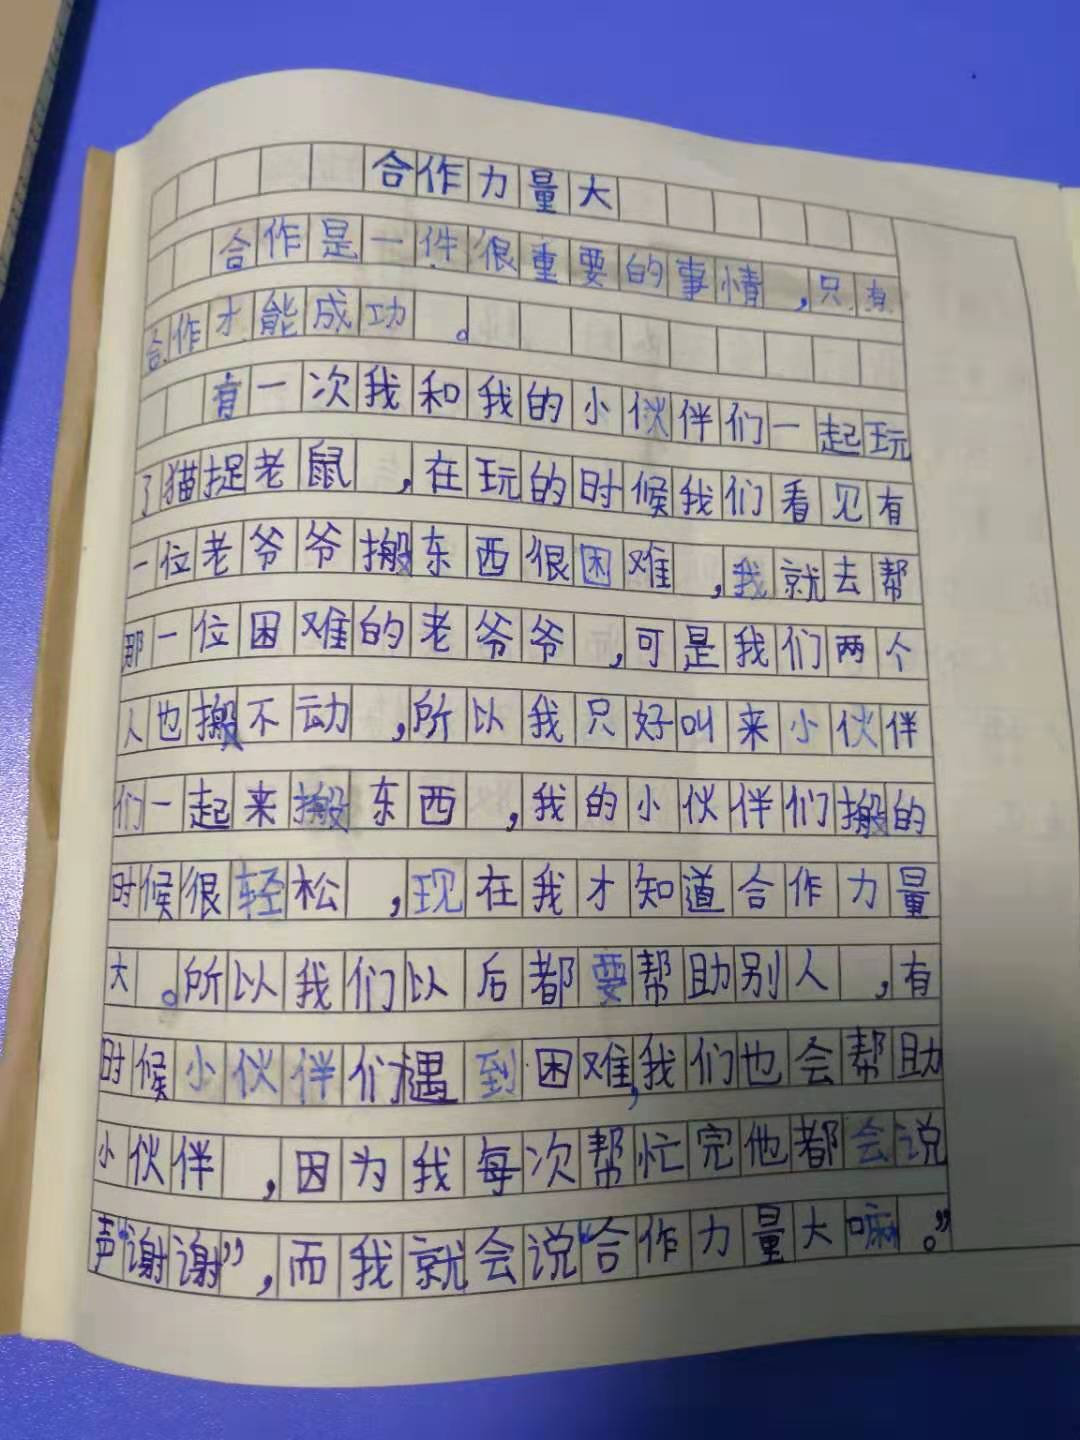 合作力量大
合作是一件很重要的事情,只有
合作才能成功。
有一次我和我的小伙伴们一起玩
了猫捉老鼠,在玩的时候我们看见有
一位老爷爷搬东西很困难,我就去帮
那一位困难的老爷爷,可是我们两个
人也搬不动,所以我只好叫来小伙伴
们一起来搬东西,我的小伙伴们搬的
时候很轻松,现在我才知道合作力量
大。所以我们以后都要帮助别人,有
时候小伙伴们遇到困难,我们也会帮助
小伙伴,因为我每次帮忙完他都会说
声“谢谢”,而我就会说“合作力量大嘛。”